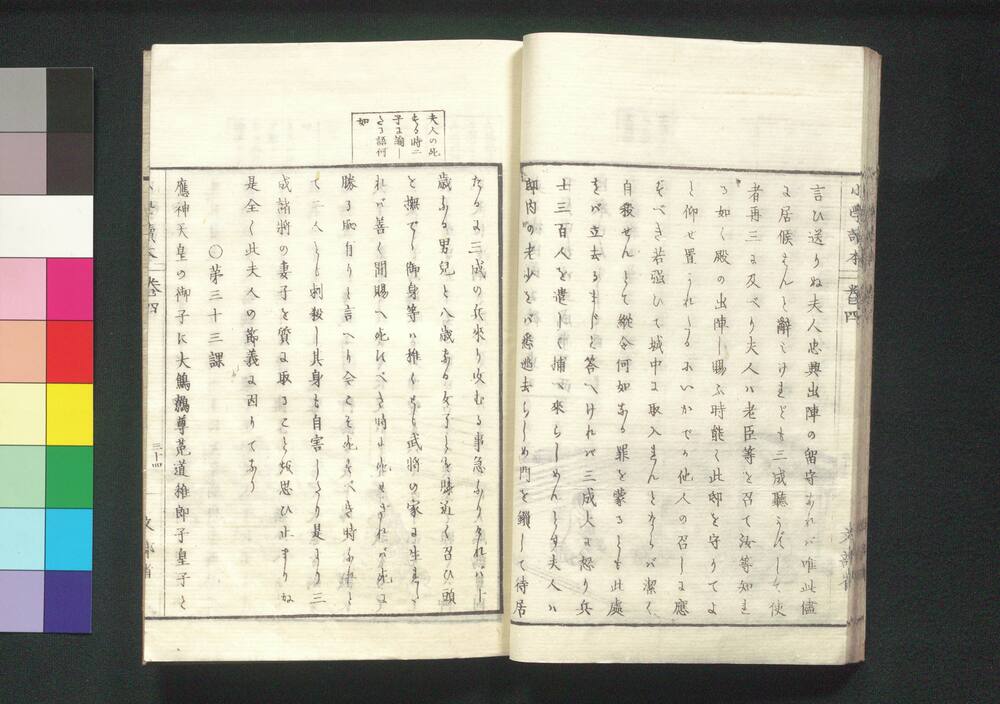 小學讀本 卷四 文部省
言ひ送りぬ夫人忠興出陣の留守あれバ唯此儘
に居候はんと辭しけれども三成聽うさして使
者再三に及べり夫人ハ老臣等を召て汝等知れ
る如く殿の出陣し賜ふ時能く此邸を守りてよ
と仰せ置うれしるにいかでか他人の召しに應
ずべき若強ひて城中に取入れんとならバ潔く
自殺せんとて縱令何如なる罪を蒙るとも此處
をバ立去るまじと答へけれバ三成大に怒り兵
士三百人を遣して捕へ來らしめんとす夫人ハ
邸内の老少をバ悉逃去らしめ門を鎖して待居
夫人の死
する時二
子に諭し
たる語何
如
たるに三成の兵來り攻むる事急なりければ十
歳なる男兒と八歳なる女子とを膝近く召ひ頭
を撫で御身等ハ推くとも武將の家に生れし
れバ善く聞賜へ死ぬべき時に死せざれバ死に
勝る恥有りと言へり今こそ死すべき時なれと
て二人とも刺殺し其身も自害しけり是より三
成諸將の妻子を質に取ることを思ひ止まりぬ
是全く此夫人の節義に因りてなり
○第三十三課
應神天皇の御子に大鷦鷯尊菟道稚郎子皇子と
小學讀本 卷四 三十四 文部省